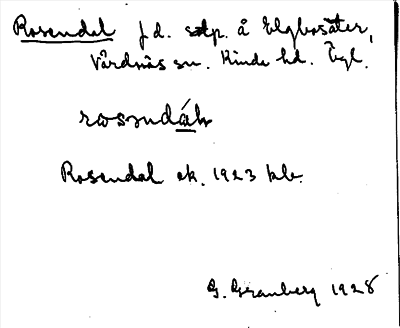 Rosendal f d. stp. å Elgbosäter,
Vårdnäs sn. Kinda hd. Ögl.
Rosendal ek. 1923 kb.
G. Granberg 1928